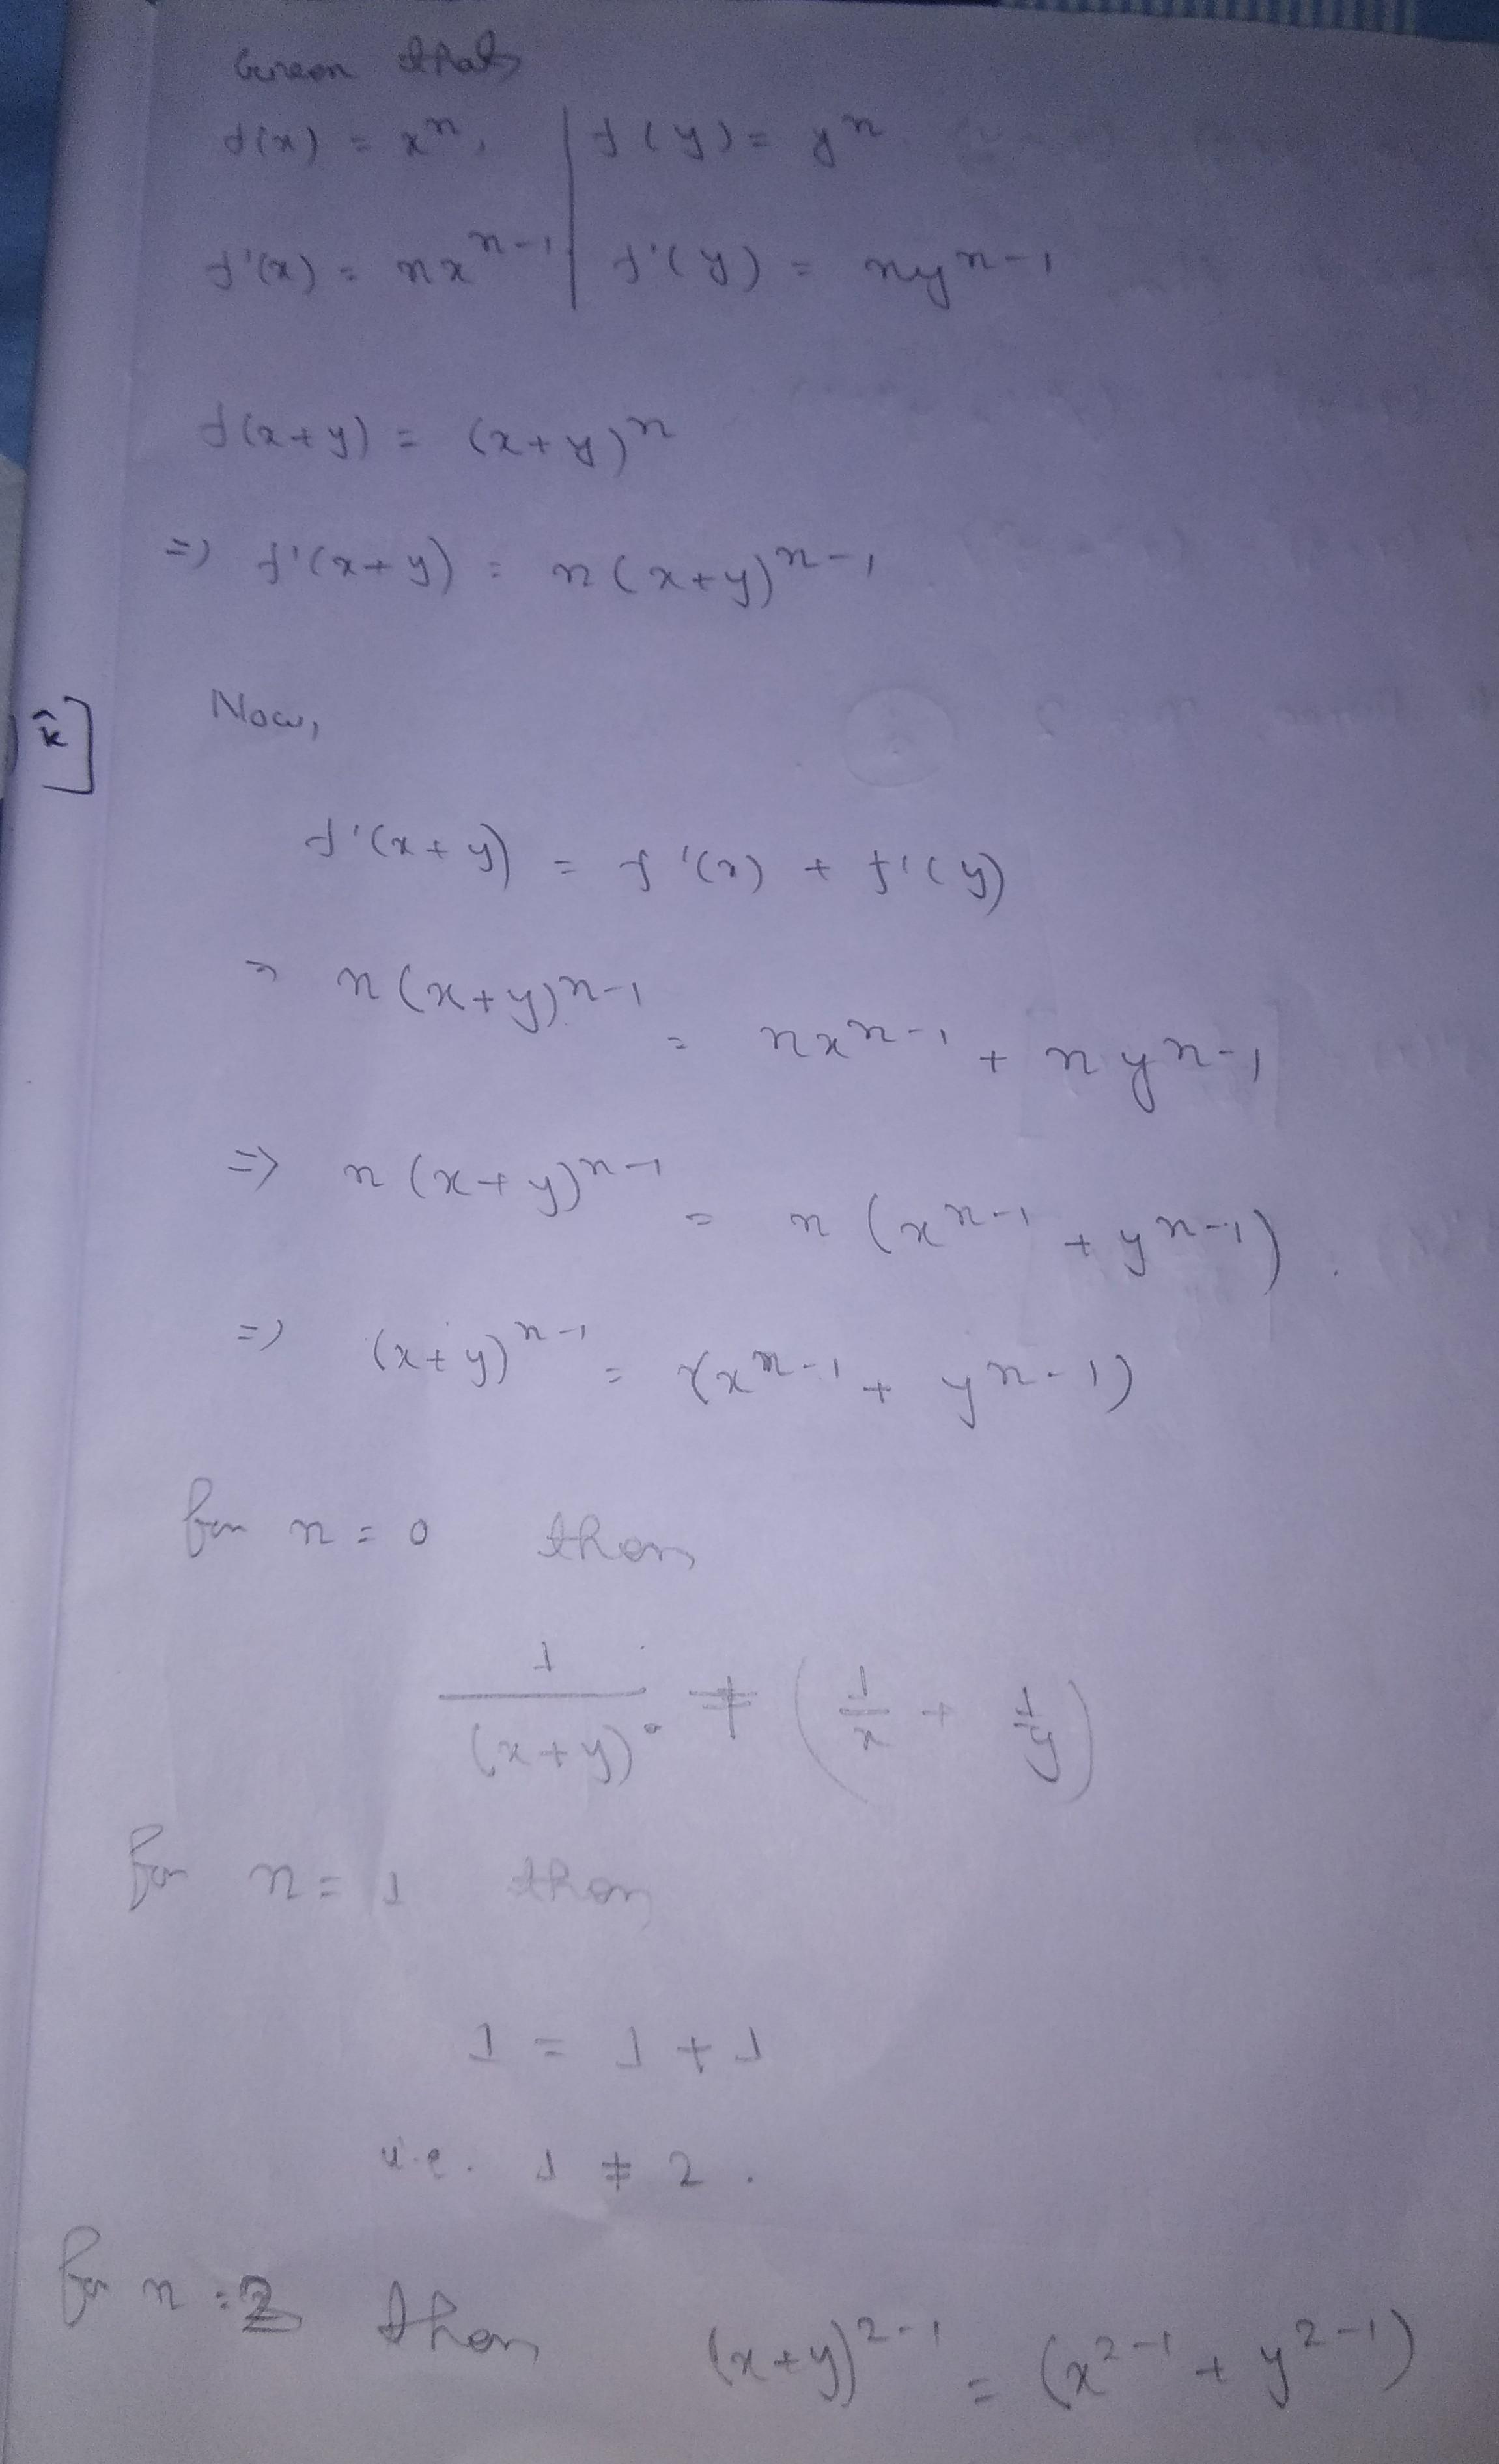 Given that
f(x) = xⁿ, | f(y) = yⁿ
f'(x) = nxⁿ⁻¹ | f'(y) = nyⁿ⁻¹
f(x+y) = (x+y)ⁿ
=) f'(x+y) = n(x+y)ⁿ⁻¹
k̂]
Now,
f'(x+y) = f'(x) + f'(y)
⇒ n(x+y)ⁿ⁻¹ = nxⁿ⁻¹ + nyⁿ⁻¹
=> n(x+y)ⁿ⁻¹ = n(xⁿ⁻¹ + yⁿ⁻¹).
=) (x+y)ⁿ⁻¹ = (xⁿ⁻¹ + yⁿ⁻¹)
for n = 0 then
1/(x+y) ≠ (1/x + 1/y)
for n = 1 then
1 = 1 + 1
i.e. 1 ≠ 2.
for n = 2 then (x+y)²⁻¹ = (x²⁻¹ + y²⁻¹)